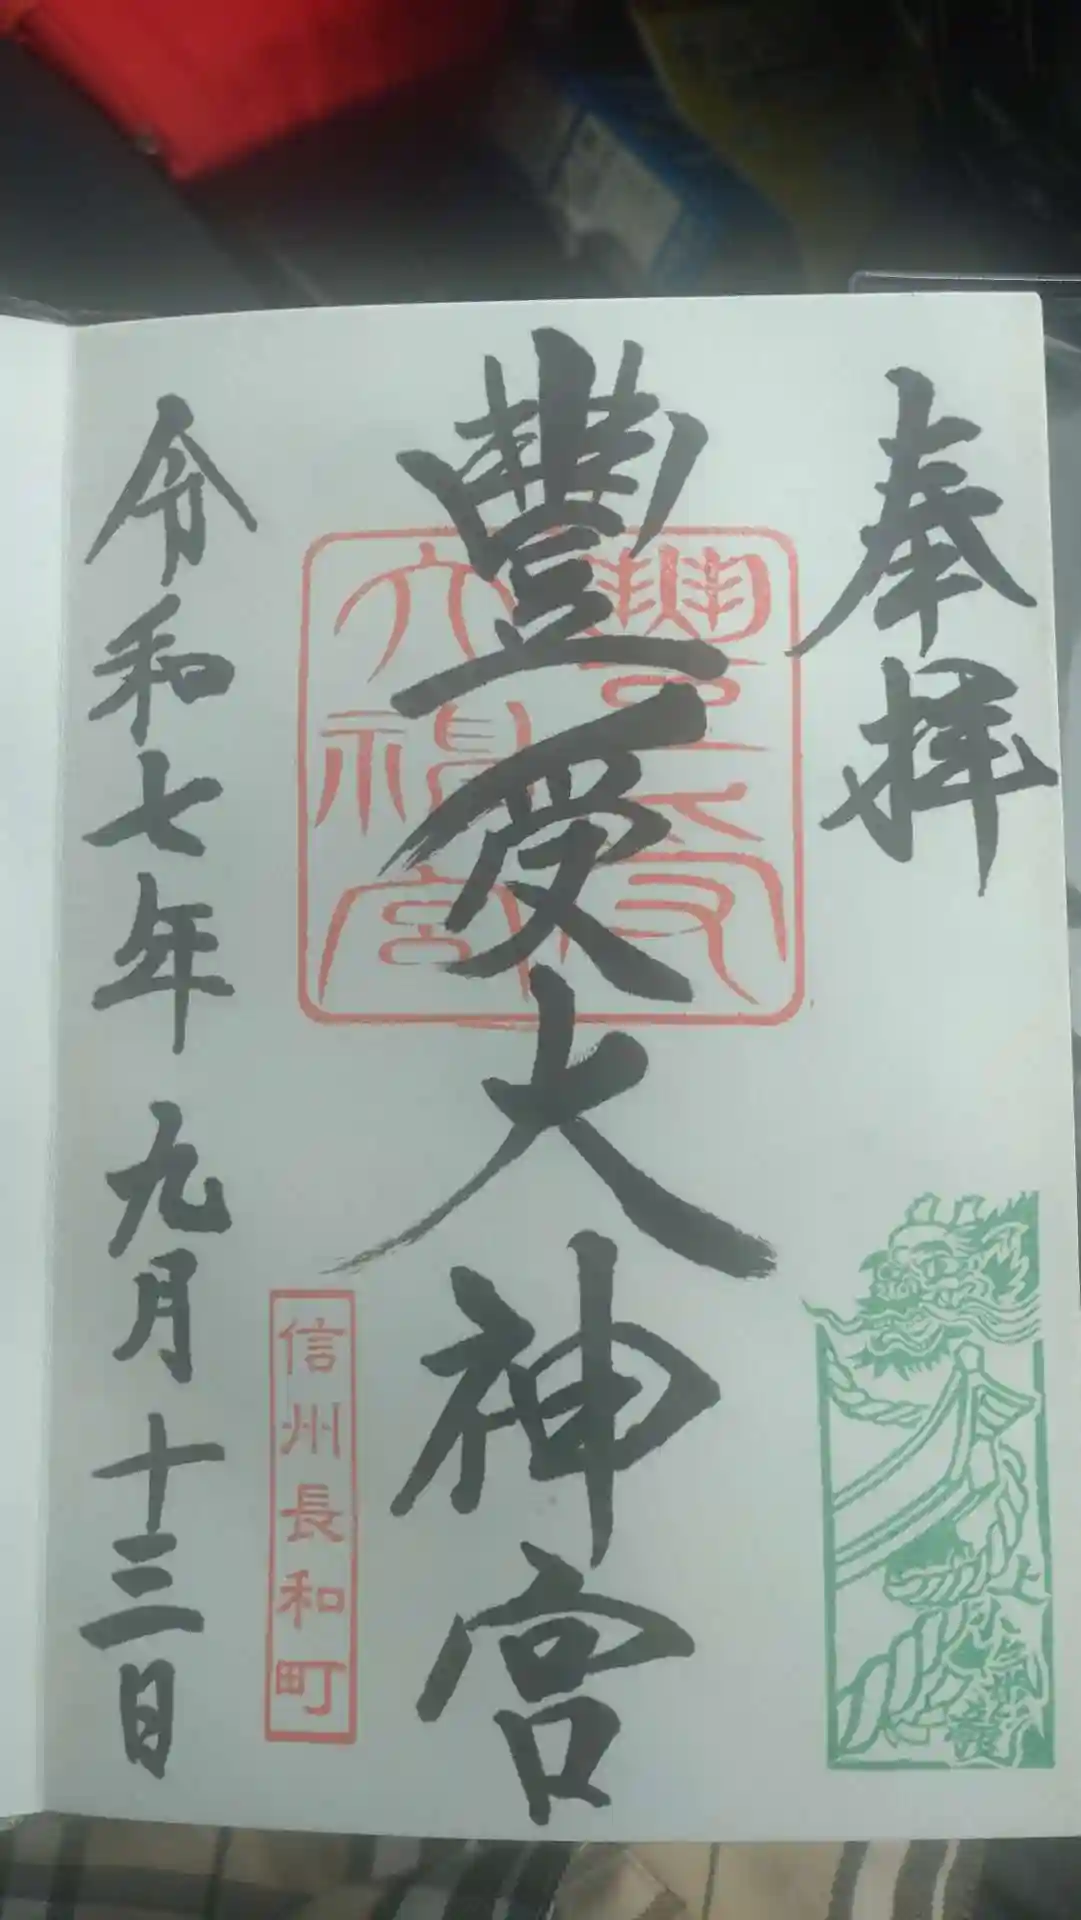 奉拝
豊受大神宮
豊受大神宮
信州長和町
令和七年九月十三日